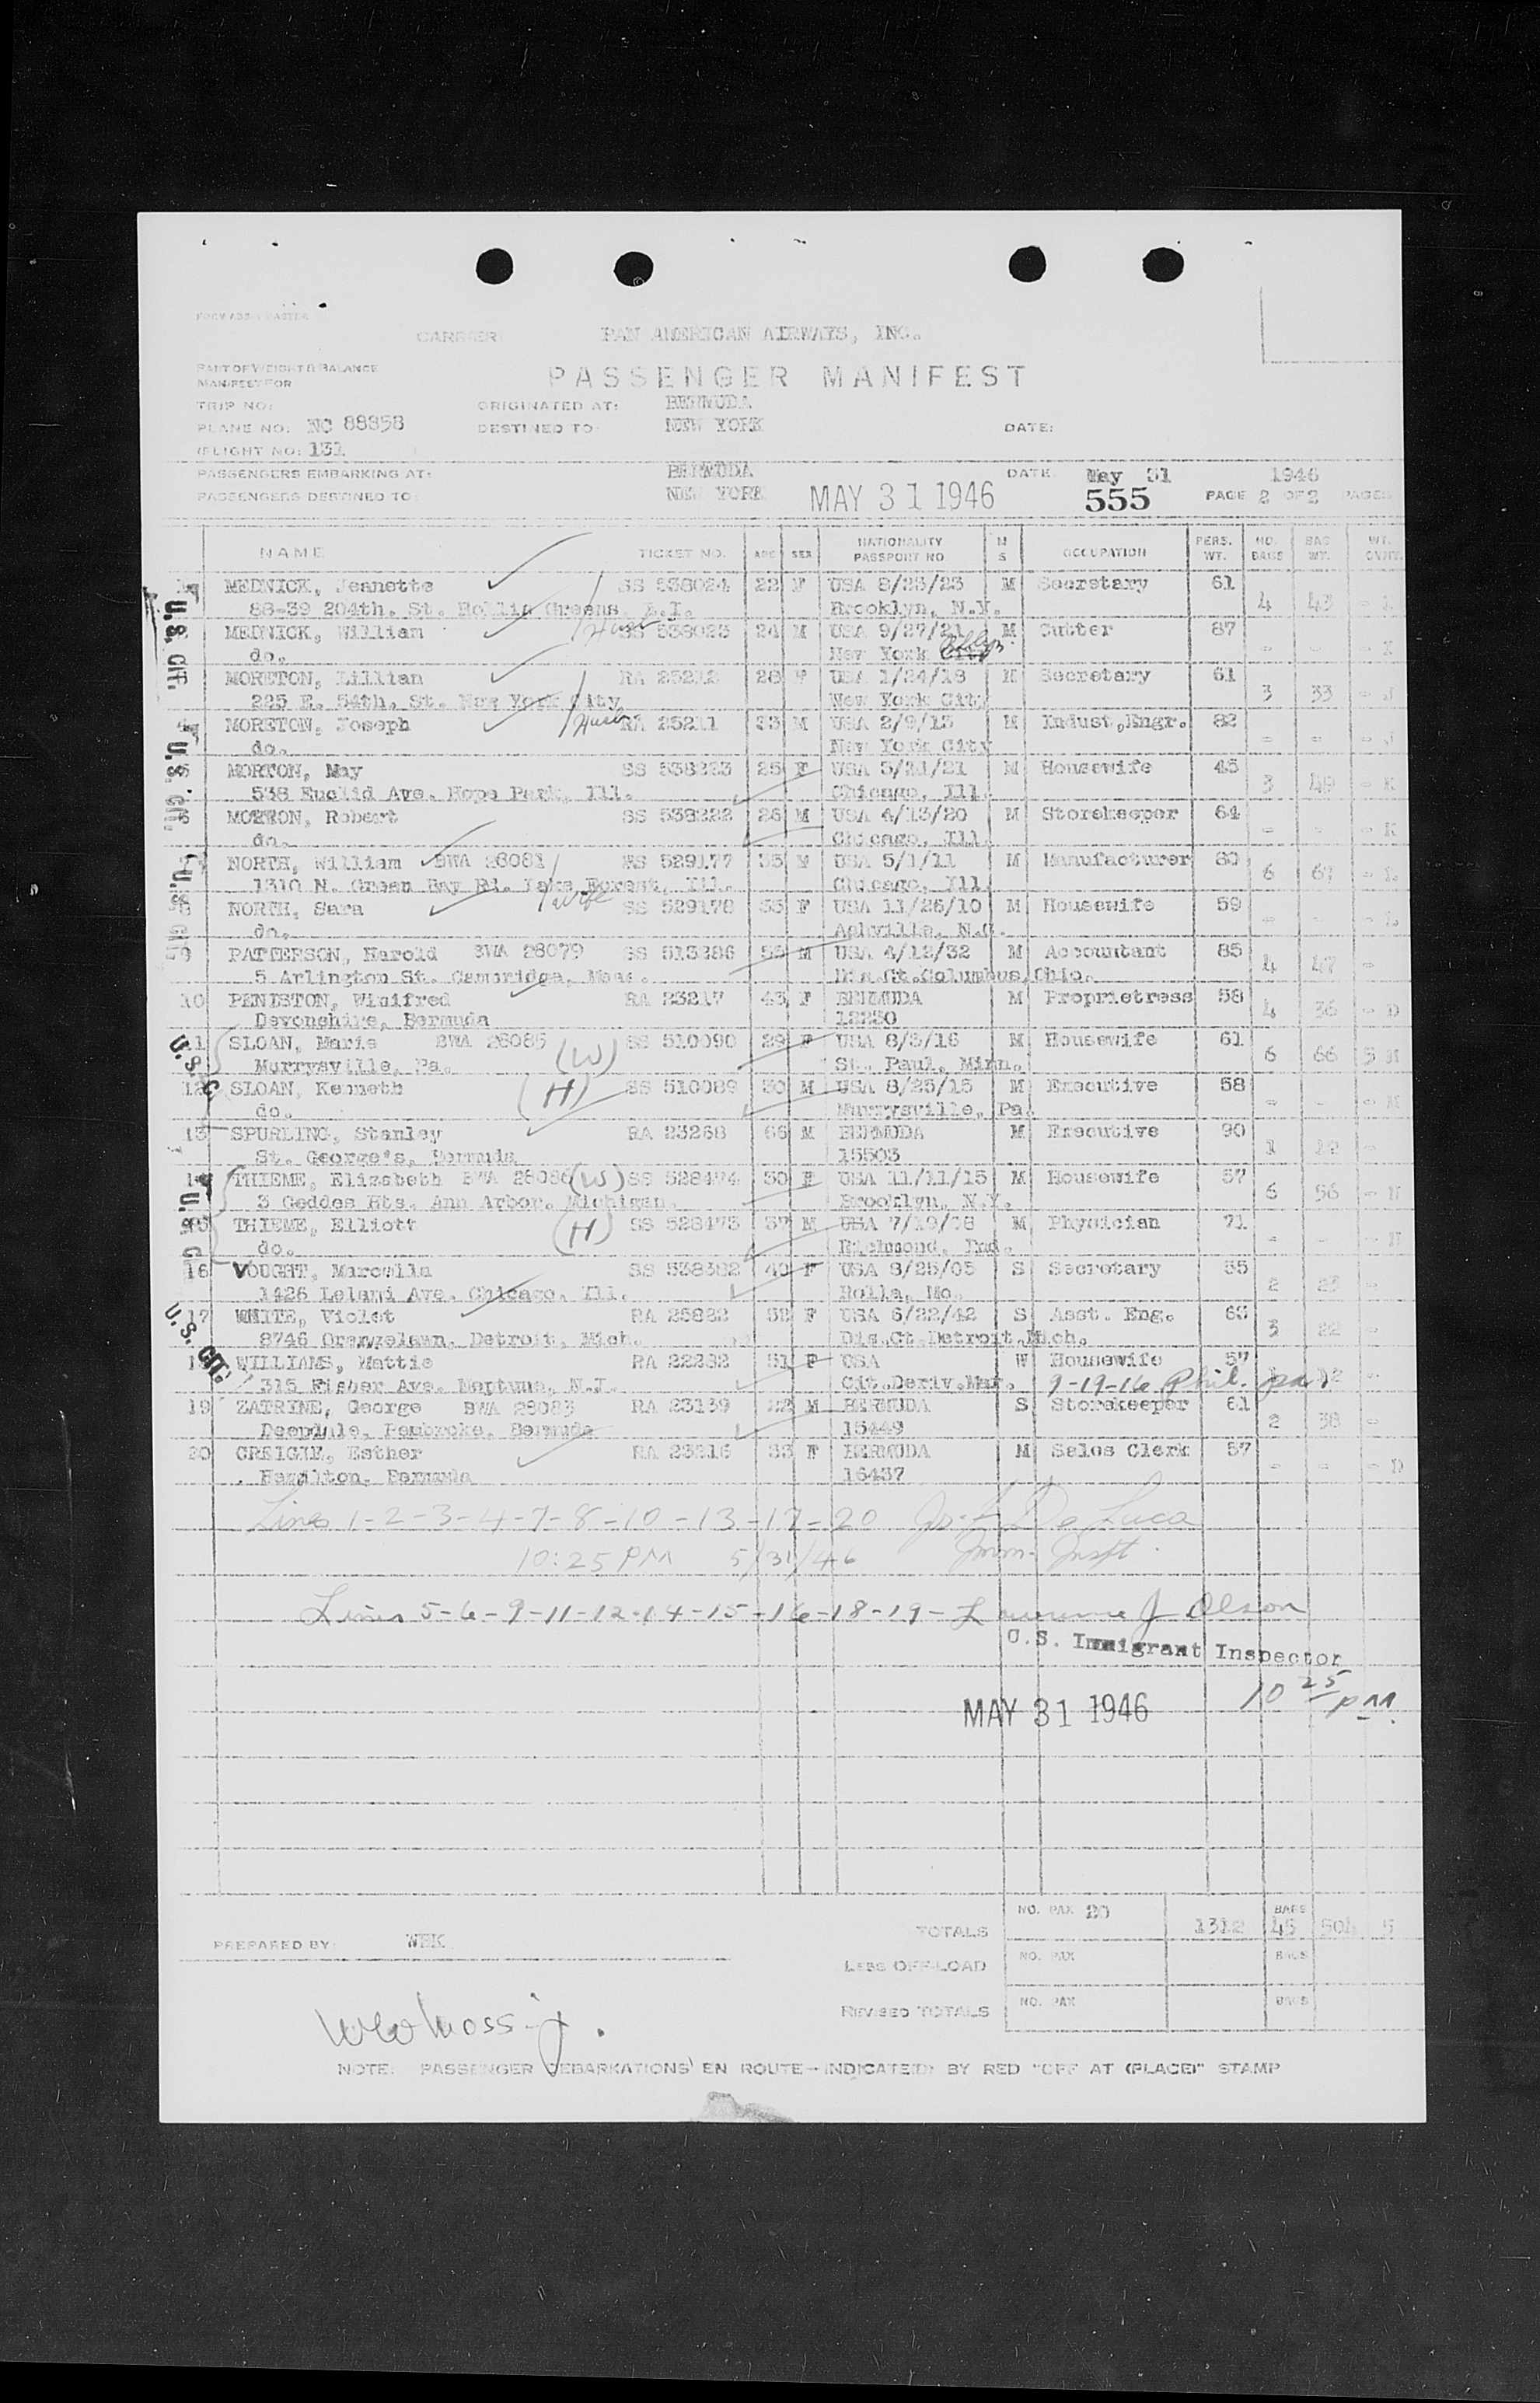 CARRIER: PAN AMERICAN AIRWAYS, INC.
PART OF WEIGHT & BALANCE
MANIFEST FOR
PASSENGER MANIFEST
TRIP NO: ORIGINATED AT: BERMUDA
PLANE NO: NC 88858 DESTINED TO: NEW YORK DATE:
FLIGHT NO: 131
PASSENGERS EMBARKING AT: BERMUDA DATE May 31 1946
PASSENGERS DESTINED TO: NEW YORK MAY 31 1946 555 PAGE 2 OF 2 PAGES
NAME TICKET NO. AGE SEX NATIONALITY PASSPORT NO M S OCCUPATION PERS. WT. NO. BAGS BAG WT. WT. OVHT.
1 MEDNICK, Jeanette SS 538024 22 F USA 8/23/23 M Secretary 61
88-39 204th. St. Hollis Greens, L.I. Brooklyn, N.Y. 4 43
MEDNICK, William SS 538023 24 M USA 9/27/21 M Cutter 87
do. New York
MORETON, Lillian RA 25212 28 F USA 1/24/18 M Secretary 61
225 E. 54th. St. New York City New York City 3 33 - J
MORETON, Joseph RA 25211 33 M USA 2/9/13 M Indust.Engr. 82
do. New York City - - - J
MORTON, May SS 538223 25 F USA 5/21/21 M Housewife 45
538 Euclid Ave. Hope Park, Ill. Chicago, Ill. 3 49 - K
6 MORTON, Robert SS 538222 26 M USA 4/13/20 M Storekeeper 64
do. Chicago, Ill - - - K
7 NORTH, William BWA 28081 SS 529177 35 M USA 5/1/11 M Manufacturer 80
1310 N. Green Bay Rd. Lake Forest, Ill. Chicago, Ill. 6 67 - L
8 NORTH, Sara Wife SS 529178 35 F USA 11/26/10 M Housewife 59
do. Ashville, N.C. - - - L
9 PATTERSON, Harold BWA 28079 SS 513386 55 M USA 4/12/32 M Accountant 85
5 Arlington St. Cambridge, Mass. Dis.Ct.Columbus,Ohio. 4 47 -
10 PENISTON, Winifred RA 23217 43 F BERMUDA M Proprietress 58
Devonshire, Bermuda 12250 4 36 - D
11 SLOAN, Marie BWA 28085 (W) SS 510090 29 F USA 8/3/16 M Housewife 61
Murrysville, Pa. St. Paul, Minn. 6 66 5 M
12 SLOAN, Kenneth (H) SS 510089 30 M USA 8/25/15 M Executive 58
do. Murrysville, Pa. - - - M
13 SPURLING, Stanley RA 23268 66 M BERMUDA M Executive 90
St. George's, Bermuda 15503 1 12 -
14 THIEME, Elizabeth BWA 28086 (W) SS 528474 30 F USA 11/11/15 M Housewife 57
3 Geddes Hts. Ann Arbor, Michigan. Brooklyn, N.Y. 6 56 - N
15 THIEME, Elliott (H) SS 528473 37 M USA 7/19/08 M Physician 71
do. Richmond, Ind. - - - N
16 VOUGHT, Marcella SS 538382 40 F USA 8/25/05 S Secretary 55
1426 Lelani Ave. Chicago, Ill. Rolla, Mo. 2 23 -
17 WHITE, Violet RA 25822 52 F USA 6/22/42 S Asst. Eng. 63
8746 Orangelawn, Detroit, Mich. Dis.Ct.Detroit,Mich. 3 22 -
18 WILLIAMS, Mattie RA 22232 51 F USA W Housewife 57
315 Fisher Ave. Neptune, N.J. Cit.Deriv.Mar. 9-19-16 Phil. pa.
19 ZATRINE, George BWA 28083 RA 23139 22 M BERMUDA S Storekeeper 61
Deepdale, Pembroke, Bermuda 15449 2 38 -
20 CREIGIE, Esther RA 23216 33 F BERMUDA M Sales Clerk 57
Hamilton, Bermuda 16437 - - - D
U.S. CIT.
U.S. CIT.
U.S. CIT.
U.S. C
U.S. C
U.S. CIT.
Lines 1-2-3-4-7-8-10-13-17-20 De Luca
10:25 PM 5/31/46 Imm. Inspt.
Lines 5-6-9-11-12-14-15-16-18-19- Lawrence J Olson
U.S. Immigrant Inspector
MAY 31 1946 10 25 PM.
TOTALS NO. PAX 20 1312 BAGS 45 504 5
PREPARED BY: WEK
LESS OFF-LOAD NO. PAX BAGS
REVISED TOTALS NO. PAX BAGS
NOTE: PASSENGER DEBARKATIONS EN ROUTE—INDICATED BY RED "OFF AT (PLACE)" STAMP